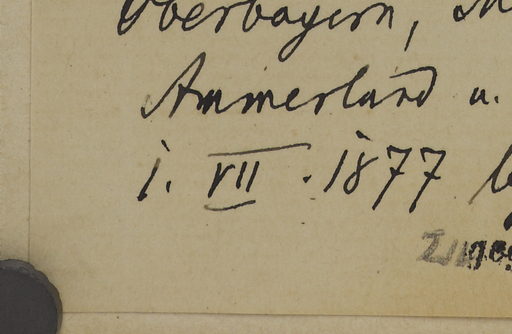 Oberbayern,
Ammerland u.
1. VII. 1877